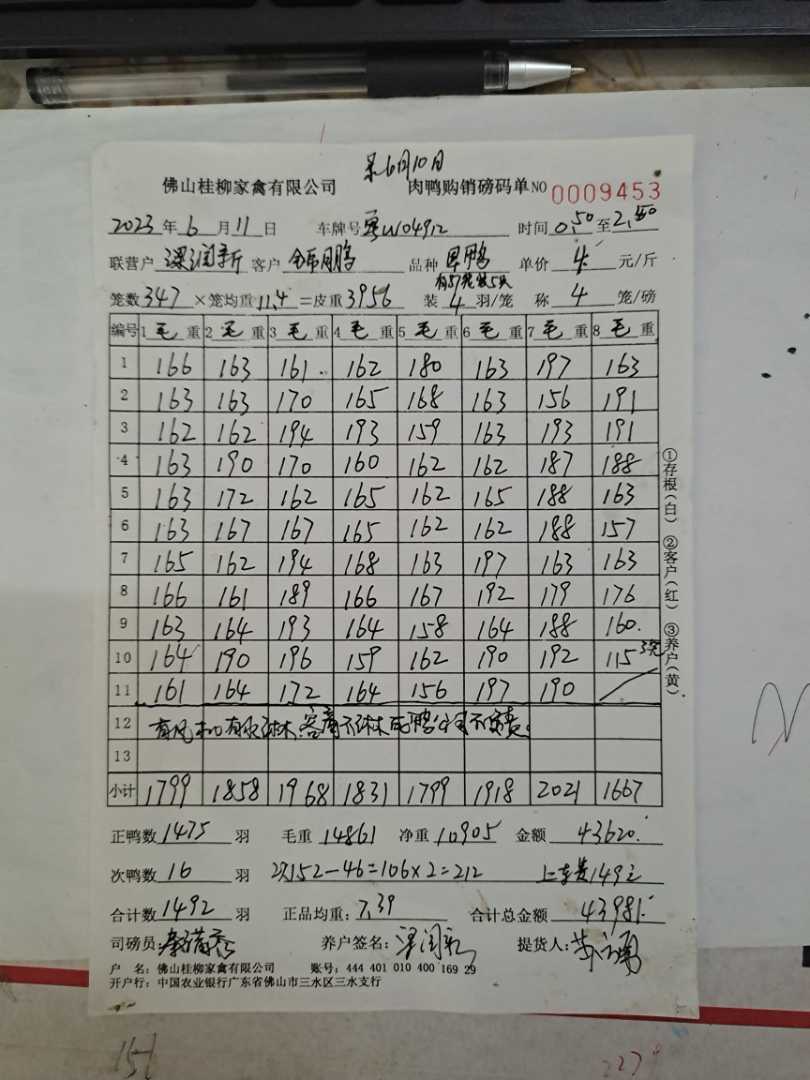 6月10日
佛山桂柳家禽有限公司 肉鸭购销磅码单 NO 0009453
2023 年 6 月 11 日 车牌号 粤W04912 时间 0.50 至 2.50
联营户 客户 品种 单价 4. 元/斤
笼数 347 ×笼均重 11.4 =皮重 3956 装 4 羽/笼 称 4 笼/磅
编号 1 毛 重 2 毛 重 3 毛 重 4 毛 重 5 毛 重 6 毛 重 7 毛 重 8 毛 重
1 166 163 161 162 180 163 197 163
2 163 163 170 165 168 163 156 191
3 162 162 194 193 159 163 193 191
4 163 190 170 160 162 162 187 188
5 163 172 162 165 162 165 188 163
6 163 167 167 165 162 162 188 157
7 165 162 194 168 163 197 163 163
8 166 161 189 166 167 192 179 176
9 163 164 193 164 158 164 188 160
10 164 190 196 159 162 190 192 115
11 161 164 172 164 156 197 190
12
13
小计 1799 1858 1968 1831 1799 1918 2021 1667
正鸭数 1475 羽 毛重 14861 净重 10905 金额 43620.
次鸭数 16 羽 次152-46=106×2=212 上车费149元
合计数 1492 羽 正品均重: 7.39 合计总金额 43981.
司磅员: 养户签名: 提货人:
户 名: 佛山桂柳家禽有限公司 账号: 444 401 010 400 169 29
开户行: 中国农业银行广东省佛山市三水区三水支行
①存根(白) ②客户(红) ③养户(黄)
151